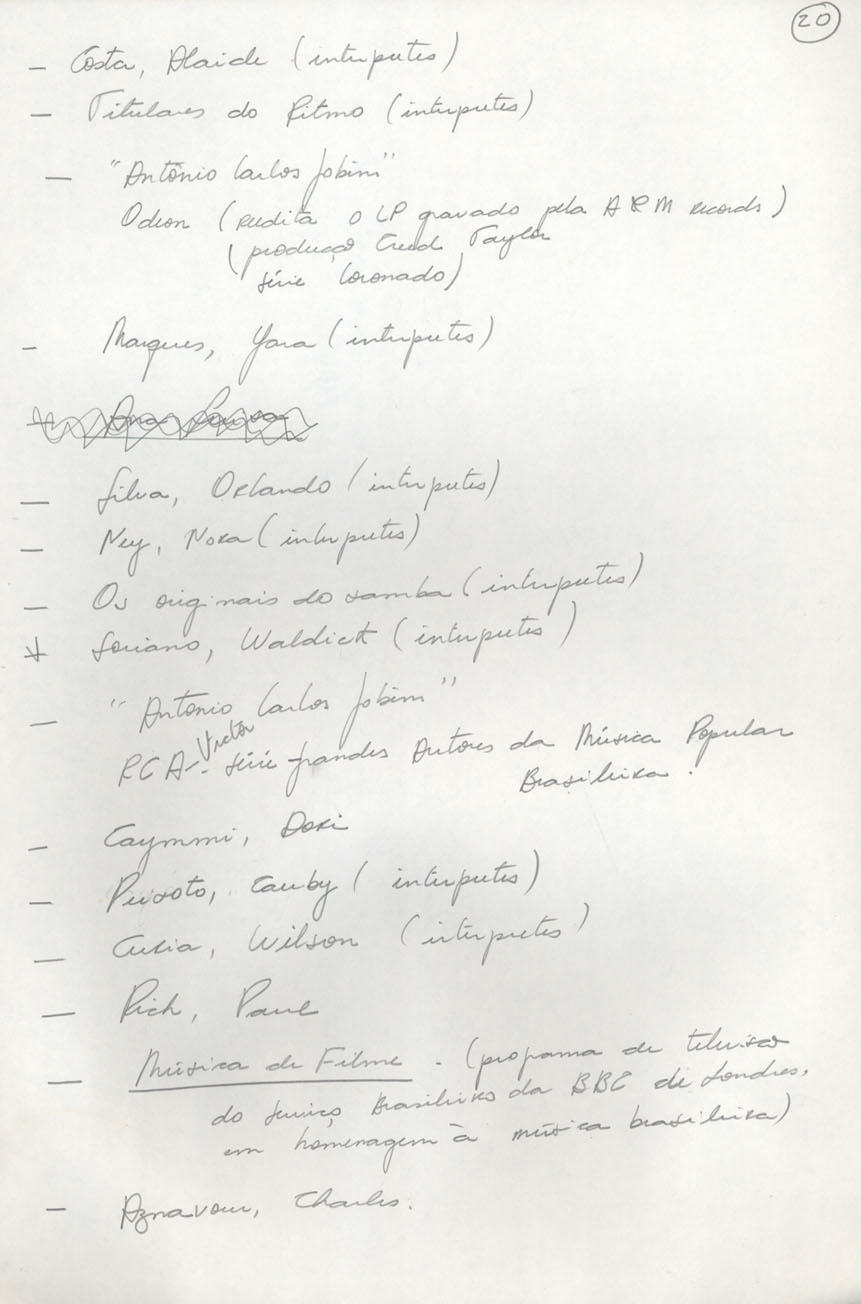 20
- Costa, Alaide (interpretes)
- Titulares do Ritmo (interpretes)
- "Antônio Carlos Jobim"
Odeon (reedita o LP gravado pela A & M records)
(produção Creed Taylor
série Coronado)
- Marques, Yara (interpretes)
- Silva, Orlando (interpretes)
- Ney, Nora (interpretes)
- Os originais do samba (interpretes)
- Soriano, Waldick (interpretes)
- "Antonio Carlos Jobim"
RCA-Victor - série grandes Autores da Música Popular
Brasileira.
- Caymmi, Dori
- Peixoto, Cauby (interpretes)
- Curia, Wilson (interpretes)
- Rich, Paul
- Música de Filme - (programa de televisão
do serviço Brasileiro da BBC de Londres,
em homenagem à música brasileira)
- Aznavour, Charles.